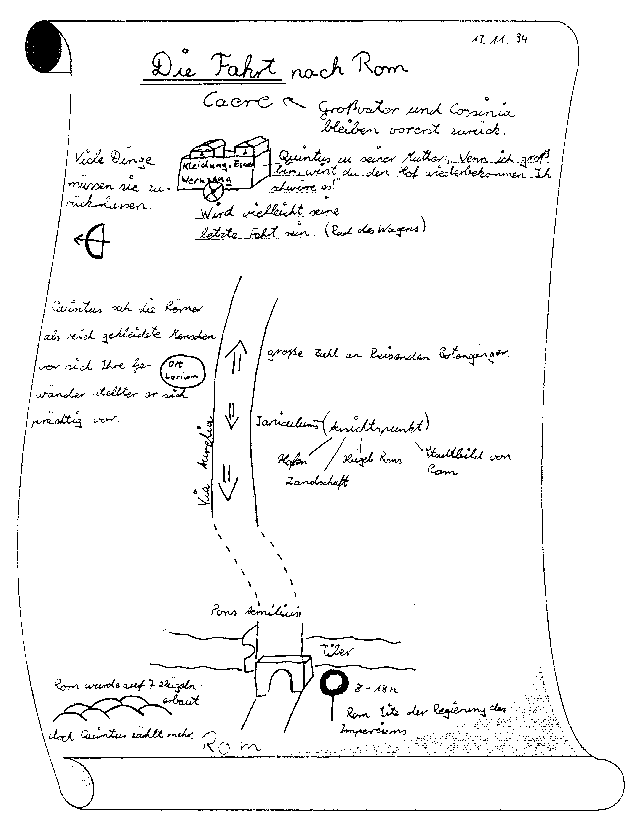 17.11.94
Die Fahrt nach Rom
Caere
Großvater und Cossinia
bleiben vorerst zurück.
Viele Dinge
müssen sie zu-
rücklassen.
Kleidung, Essen
Werkzeug
Quintus zu seiner Mutter: Wenn ich groß
bin, wirst du den Hof wiederbekommen. Ich
schwöre es!
Wird vielleicht seine
letzte Fahrt sein. (Rad des Wagens)
Quintus sah die Römer
als reich gekleidete Menschen
vor sich Ihre Ge-
wänder stellter er sich
prächtig vor.
Ort
große Zahl an Reisenden
Via Aurelia
Janiculums (Aussichtspunkt)
Hafen
Landschaft
Hügel Roms
Stadtbild von
Rom
Pons Aemilius
Tiber
8-18h
Rom wurde auf 7 Hügeln
erbaut
doch Quintus zählt mehr.
Rom Sitz der Regierung des
Imperiums
Rom